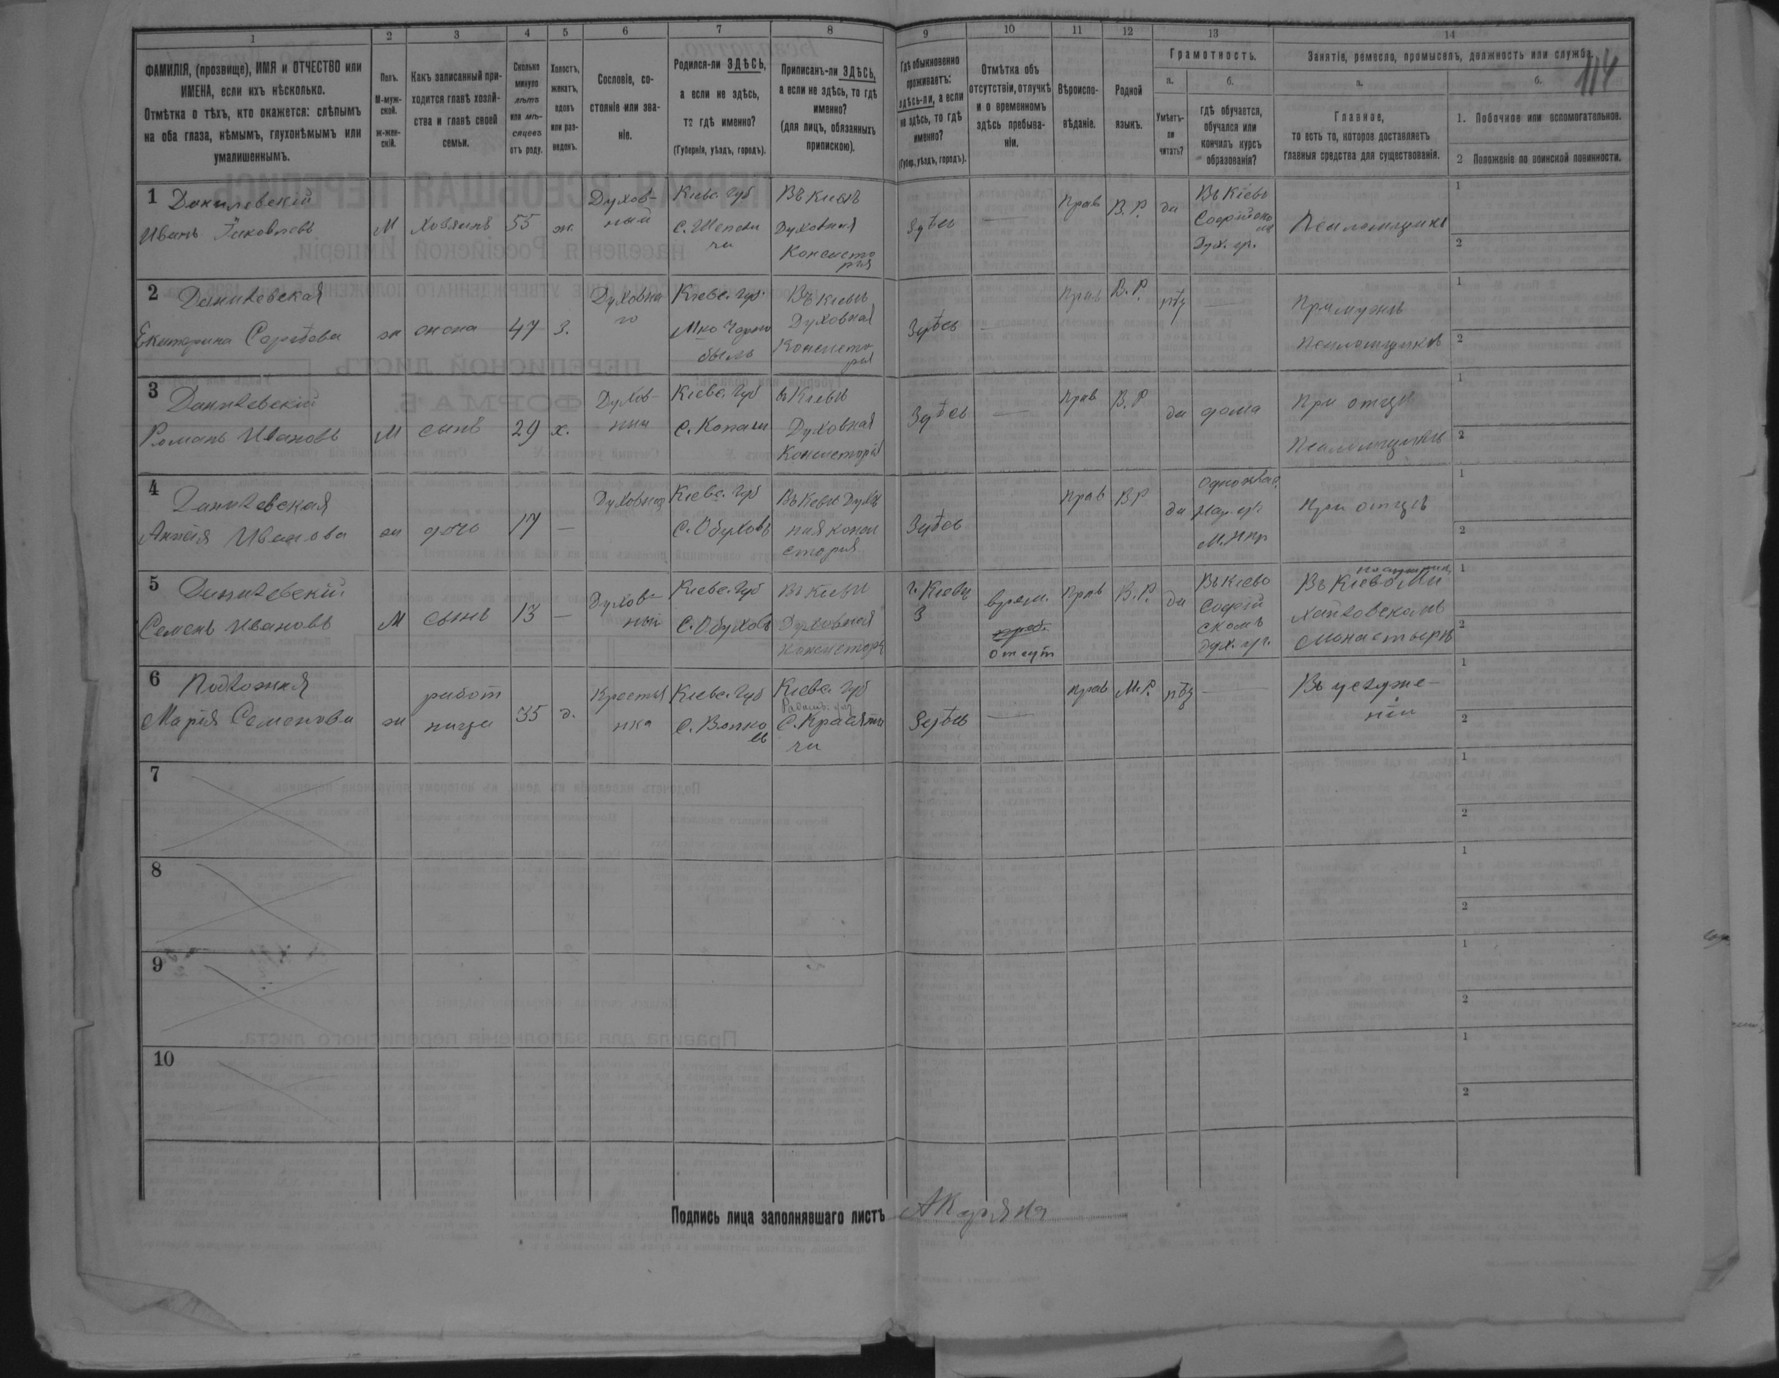 114
1 2 3 4 5 6 7 8 9 10 11 12 13 14
ФАМИЛІЯ, (прозвище), ИМЯ и ОТЧЕСТВО или
ИМЕНА, если ихъ нѣсколько.
Отмѣтка о тѣхъ, кто окажется: слѣпымъ
на оба глаза, нѣмымъ, глухонѣмымъ или
умалишеннымъ.
Полъ.
М-муж-
ской.
ж-жен-
скій.
Какъ записанный при-
ходится главѣ хозяй-
ства и главѣ своей
семьи.
Сколько
минуло
лѣтъ
или мѣ-
сяцевъ
отъ роду.
Холостъ,
женатъ,
вдовъ
или раз-
веденъ.
Сословіе, со-
стояніе или зва-
ніе.
Родился-ли ЗДѢСЬ,
а если не здѣсь,
то гдѣ именно?
(Губернія, уѣздъ, городъ).
Приписанъ-ли ЗДѢСЬ,
а если не здѣсь, то гдѣ
именно?
(для лицъ, обязанныхъ
припискою).
Гдѣ обыкновенно
проживаетъ:
здѣсь-ли, а если
не здѣсь, то гдѣ
именно?
(Губер., уѣздъ, городъ).
Отмѣтка объ
отсутствіи, отлучкѣ
и о временномъ
здѣсь пребыва-
ніи.
Вѣроиспо-
вѣданіе.
Родной
языкъ.
Грамотность.
а. б.
Умѣетъ-
ли
читать?
гдѣ обучается,
обучался или
кончилъ курсъ
образованія?
Занятія, ремесло, промыселъ, должность или служба.
а. б.
Главное,
то есть то, которое доставляетъ
главныя средства для существованія.
1. Побочное или вспомогательное.
2 Положеніе по воинской повинности.
1 Данилевскій
Иванъ Яковлевъ
М
хозяинъ
55
ж.
Духов-
ный
Кіевс. губ
Въ Кіевѣ
Духовная
Консисто
рія
Здѣсь
Прав
В.Р.
да
Въ Кіевѣ
Дух. уч.
Псаломщикъ
1
2
2 Данилевская
Екатерина
ж
жена
47
з.
Духовна
го
Кіевс. губ.
М-ко Черно
быль
Въ Кіевѣ
Духовная
Консисто
рія
Здѣсь
Прав
В.Р.
нѣт
При мужѣ
псаломщикѣ
1
2
3 Данилевскій
Романъ Ивановъ
М
сынъ
29
х.
Духов-
ный
Кіевс. губ
С. Копачи
въ Кіевѣ
Духовная
Консисторія
Здѣсь
Прав
В.Р
да
дома
При отцѣ
Псаломщикѣ
1
2
4 Данилевская
Ивановa
ж
дочь
17
Духовная
Кіевс. губ
С. Обуховъ
Въ Кіевѣ Духов
ная конси
сторія
Здѣсь
Прав
В.Р
да
При отцѣ
1
2
5 Данилевскій
Семенъ Ивановъ
М
сынъ
13
Духов-
ный
Кіевс. губ
С. Обуховъ
Въ Кіевѣ
Духовная
консисторія
г. Кіевъ
3
врем.
отсут
Прав
В.Р.
да
Въ Кіево
Софій
скомъ
дух. уч.
Въ Кіево Ми
хайловскомъ
монастырѣ
1
2
6
Марія Семенова
ж
работ
ница
35
д.
Крестья
нка
Кіевс. губ
Кіевс. губ
С. Красяти
чи
Здѣсь
прав
М.Р.
нѣт
Въ услуже-
ніи
1
2
7
1
2
8
1
2
9
1
2
10
1
2
Подпись лица заполнявшаго листъ